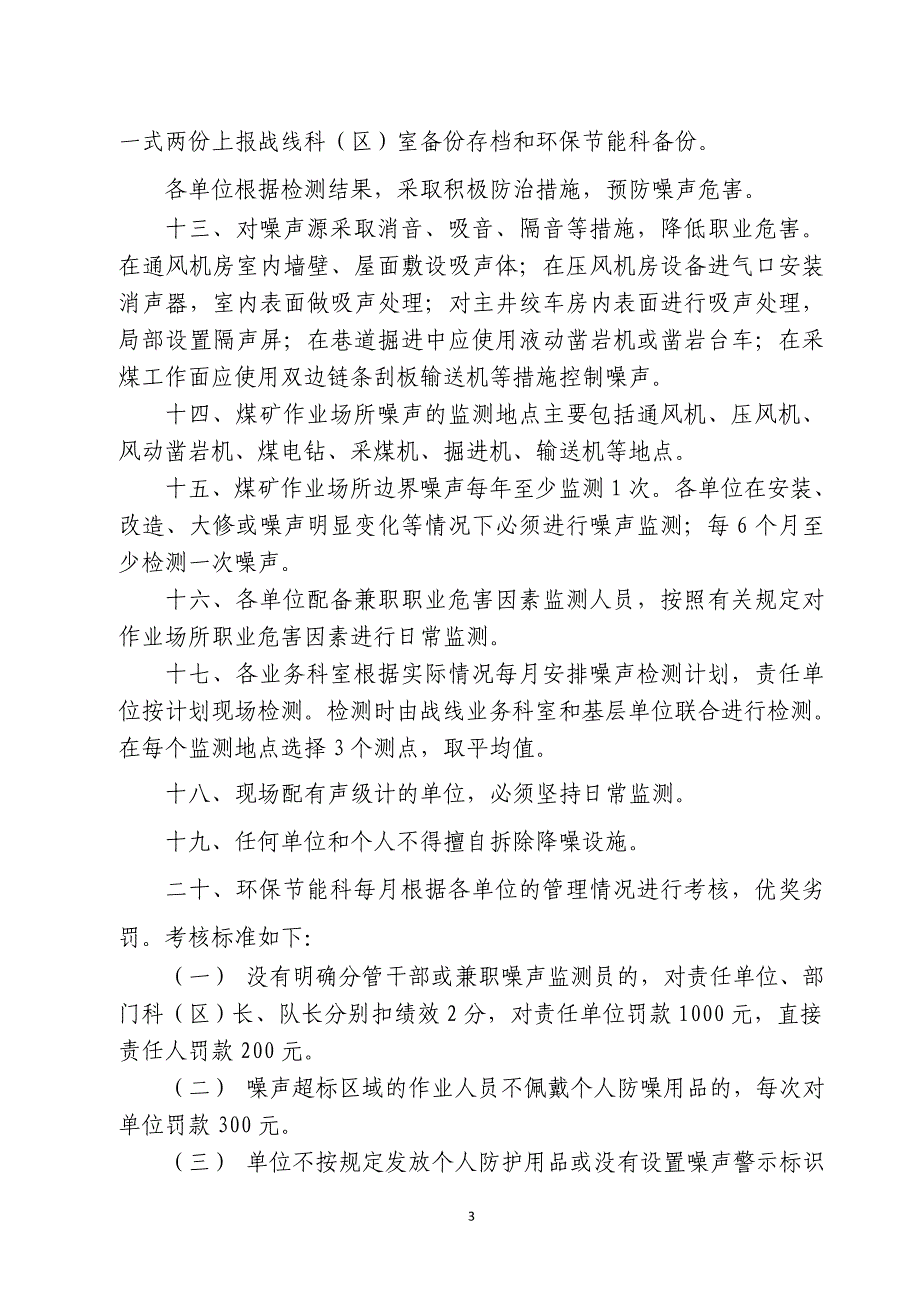 一式两份上报战线科（区）室备份存档和环保节能科备份。
各单位根据检测结果，采取积极防治措施，预防噪声危害。
十三、对噪声源采取消音、吸音、隔音等措施，降低职业危害。
在通风机房室内墙壁、屋面敷设吸声体；在压风机房设备进气口安装
消声器，室内表面做吸声处理；对主井绞车房内表面进行吸声处理，
局部设置隔声屏；在巷道掘进中应使用液动凿岩机或凿岩台车；在采
煤工作面应使用双边链条刮板输送机等措施控制噪声。
十四、煤矿作业场所噪声的监测地点主要包括通风机、压风机、
风动凿岩机、煤电钻、采煤机、掘进机、输送机等地点。
十五、煤矿作业场所边界噪声每年至少监测1次。各单位在安装、
改造、大修或噪声明显变化等情况下必须进行噪声监测；每6个月至
少检测一次噪声。
十六、各单位配备兼职职业危害因素监测人员，按照有关规定对
作业场所职业危害因素进行日常监测。
十七、各业务科室根据实际情况每月安排噪声检测计划，责任单
位按计划现场检测。检测时由战线业务科室和基层单位联合进行检测。
在每个监测地点选择3个测点，取平均值。
十八、现场配有声级计的单位，必须坚持日常监测。
十九、任何单位和个人不得擅自拆除降噪设施。
二十、环保节能科每月根据各单位的管理情况进行考核，优奖劣
罚。考核标准如下：
（一） 没有明确分管干部或兼职噪声监测员的，对责任单位、部
门科（区）长、队长分别扣绩效2分，对责任单位罚款1000元，直接
责任人罚款200元。
（二） 噪声超标区域的作业人员不佩戴个人防噪用品的，每次对
单位罚款300元。
（三） 单位不按规定发放个人防护用品或没有设置噪声警示标识
3